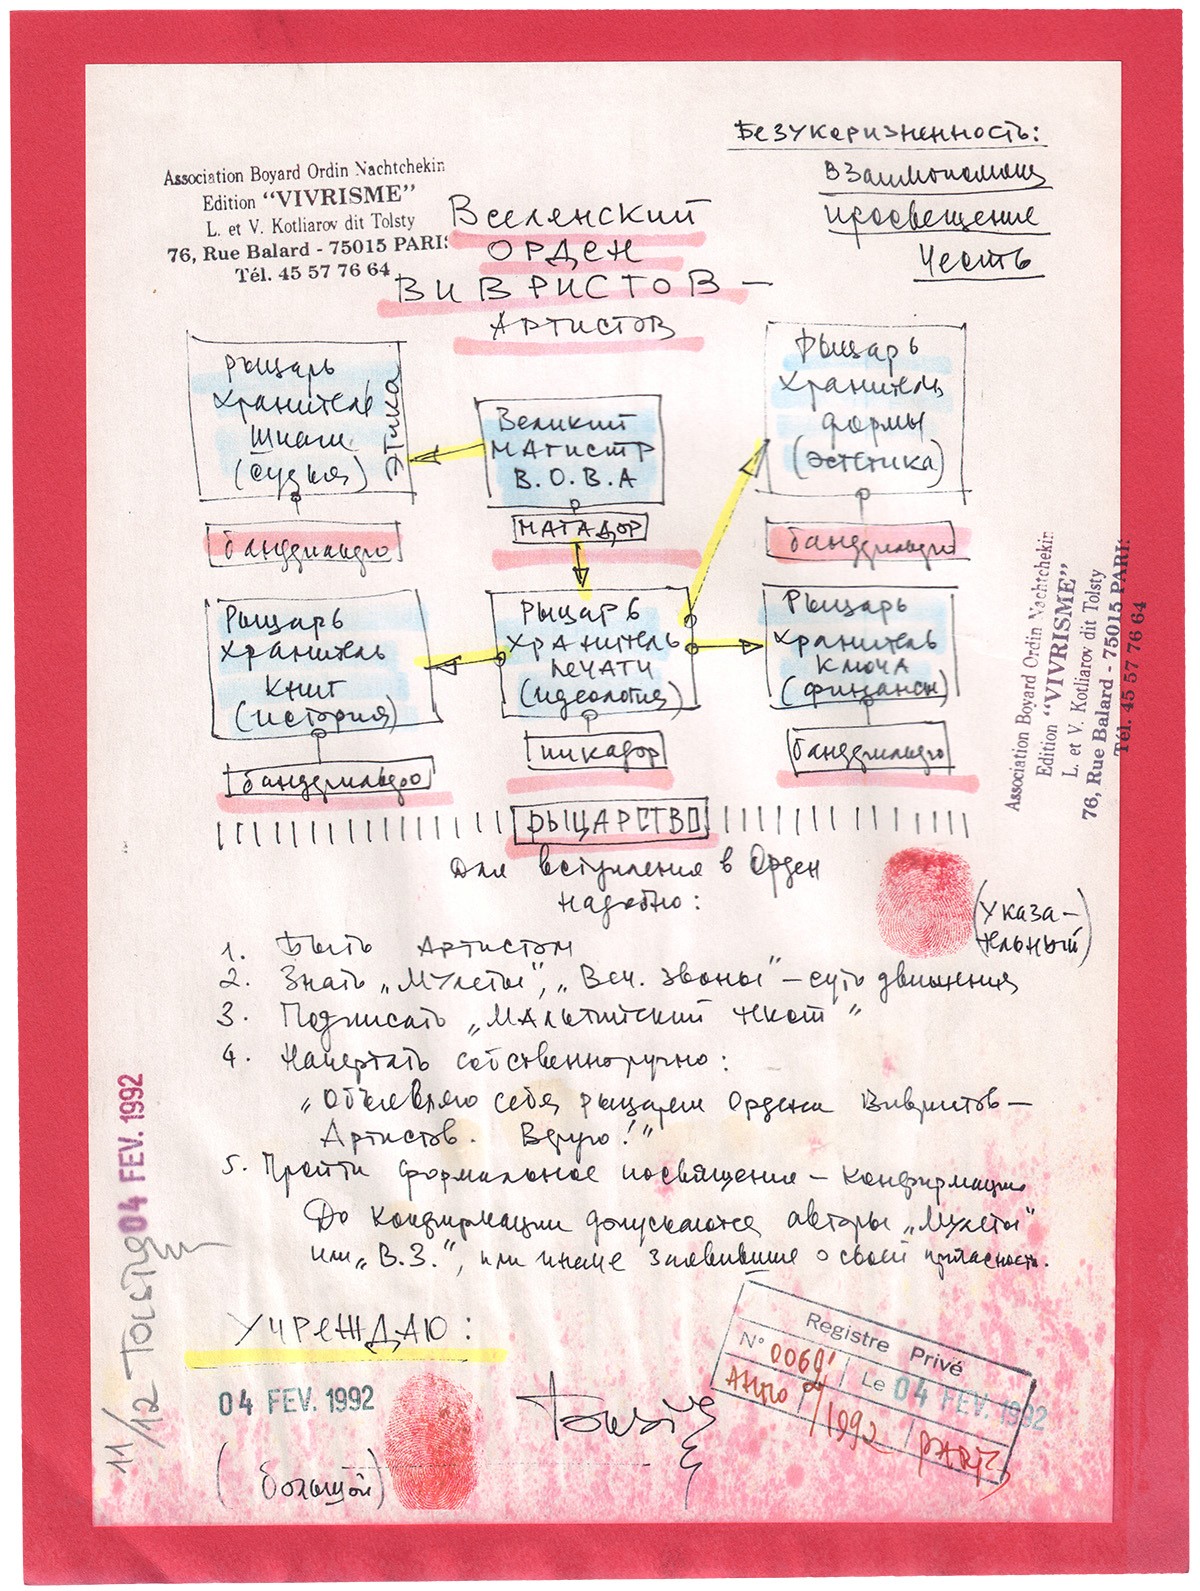 Безукоризненность:
Взаимопомощь
Просвещение
Честь
Association Boyard Ordin Nachtchekin
Edition "VIVRISME"
L. et V. Kotliarov dit Tolsty
76, Rue Balard - 75015 PARIS
Tél. 45 57 76 64
Вселенский
ОРДЕН
ВИВРИСТОВ —
АРТИСТОВ
Рыцарь
хранитель
шпаги
(судья)
ЭТИКА
Великий
магистр
В.О.В.А
МАТАДОР
Рыцарь
хранитель
формы
(эстетика)
бандрильеро
бандрильеро
Рыцарь
хранитель
книг
(история)
Рыцарь
хранитель
печати
(идеология)
Рыцарь
хранитель
ключа
(финансы)
бандрильеро
пикадор
бандрильеро
Association Boyard Ordin Nachtchekin
Edition "VIVRISME"
L. et V. Kotliarov dit Tolsty
76, Rue Balard - 75015 PARIS
Tél. 45 57 76 64
РЫЦАРСТВО
Для вступления в Орден
надобно:
(указа-
тельный)
1. Быть Артистом
2. Знать „Мулеты", „Веч. звоны" – суть движения
3. Подписать „Мальтийский
4. Начертать собственноручно:
„Объявляю себя рыцарем Ордена Вивристов –
Артистов. Верую!"
5. Пройти формальное посвящение – конфирмацию
До конфирмации допускаются авторы „Мулеты"
или „В.З.", или иначе заявившие о своей
УЧРЕЖДАЮ:
04 FEV. 1992
(большой)
Tolsty
Registre Privé
N° 0060 Le 04 FEV. 1992
1992 PARIS
11/12 Tolsty 04 FEV. 1992